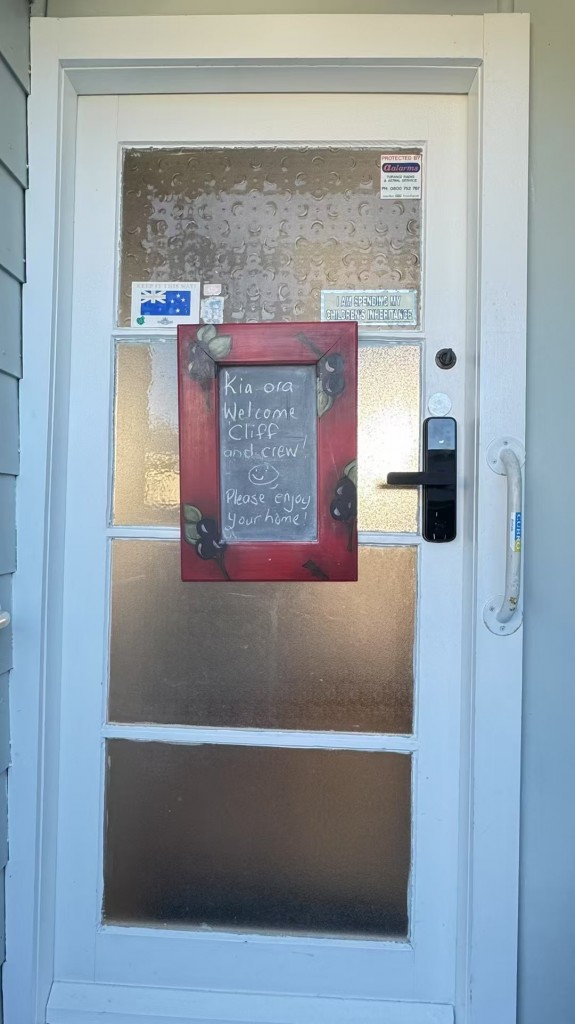 PROTECTED BY
Aalarms
I AM SPENDING MY
CHILDREN'S INHERITANCE
Kia ora
Welcome
Cliff
and crew!
Please enjoy
your home!